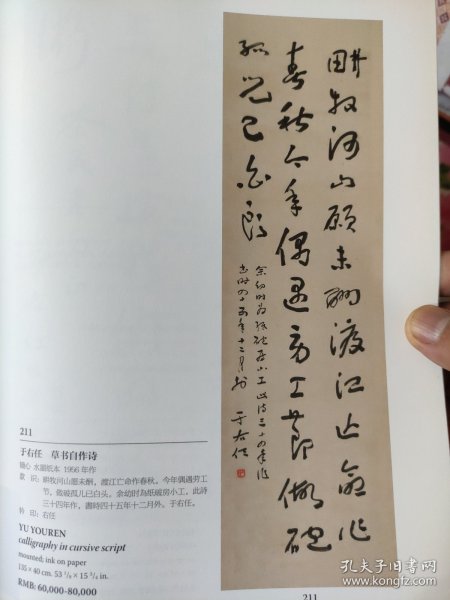 畊牧河山願未酬渡江亡命作
春秋今年偶遇劳工節做砲
孤兒已白頭
余幼時為紙砲房小工此詩三十四年作
書時四十五年十二月外 于右任
211
于右任 草书自作诗
镜心 水墨纸本 1956 年作
款 识：畊牧河山愿未酬，渡江亡命作春秋。今年偶遇劳工
节，做砲孤儿已白头。余幼时为纸砲房小工。此詩
三十四年作，書時四十五年十二月外。于右任。
钤 印：右任
YU YOUREN
calligraphy in cursive script
mounted; ink on paper
135 × 40 cm. 53 1/8 × 15 3/4 in.
RMB: 60,000-80,000
211
孔夫子旧书网
kongfz.com